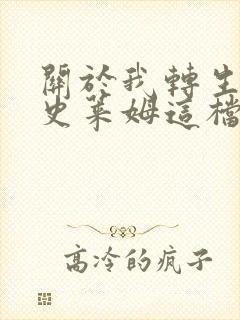 關於我轉生
史萊姆這檔
高冷的疯子